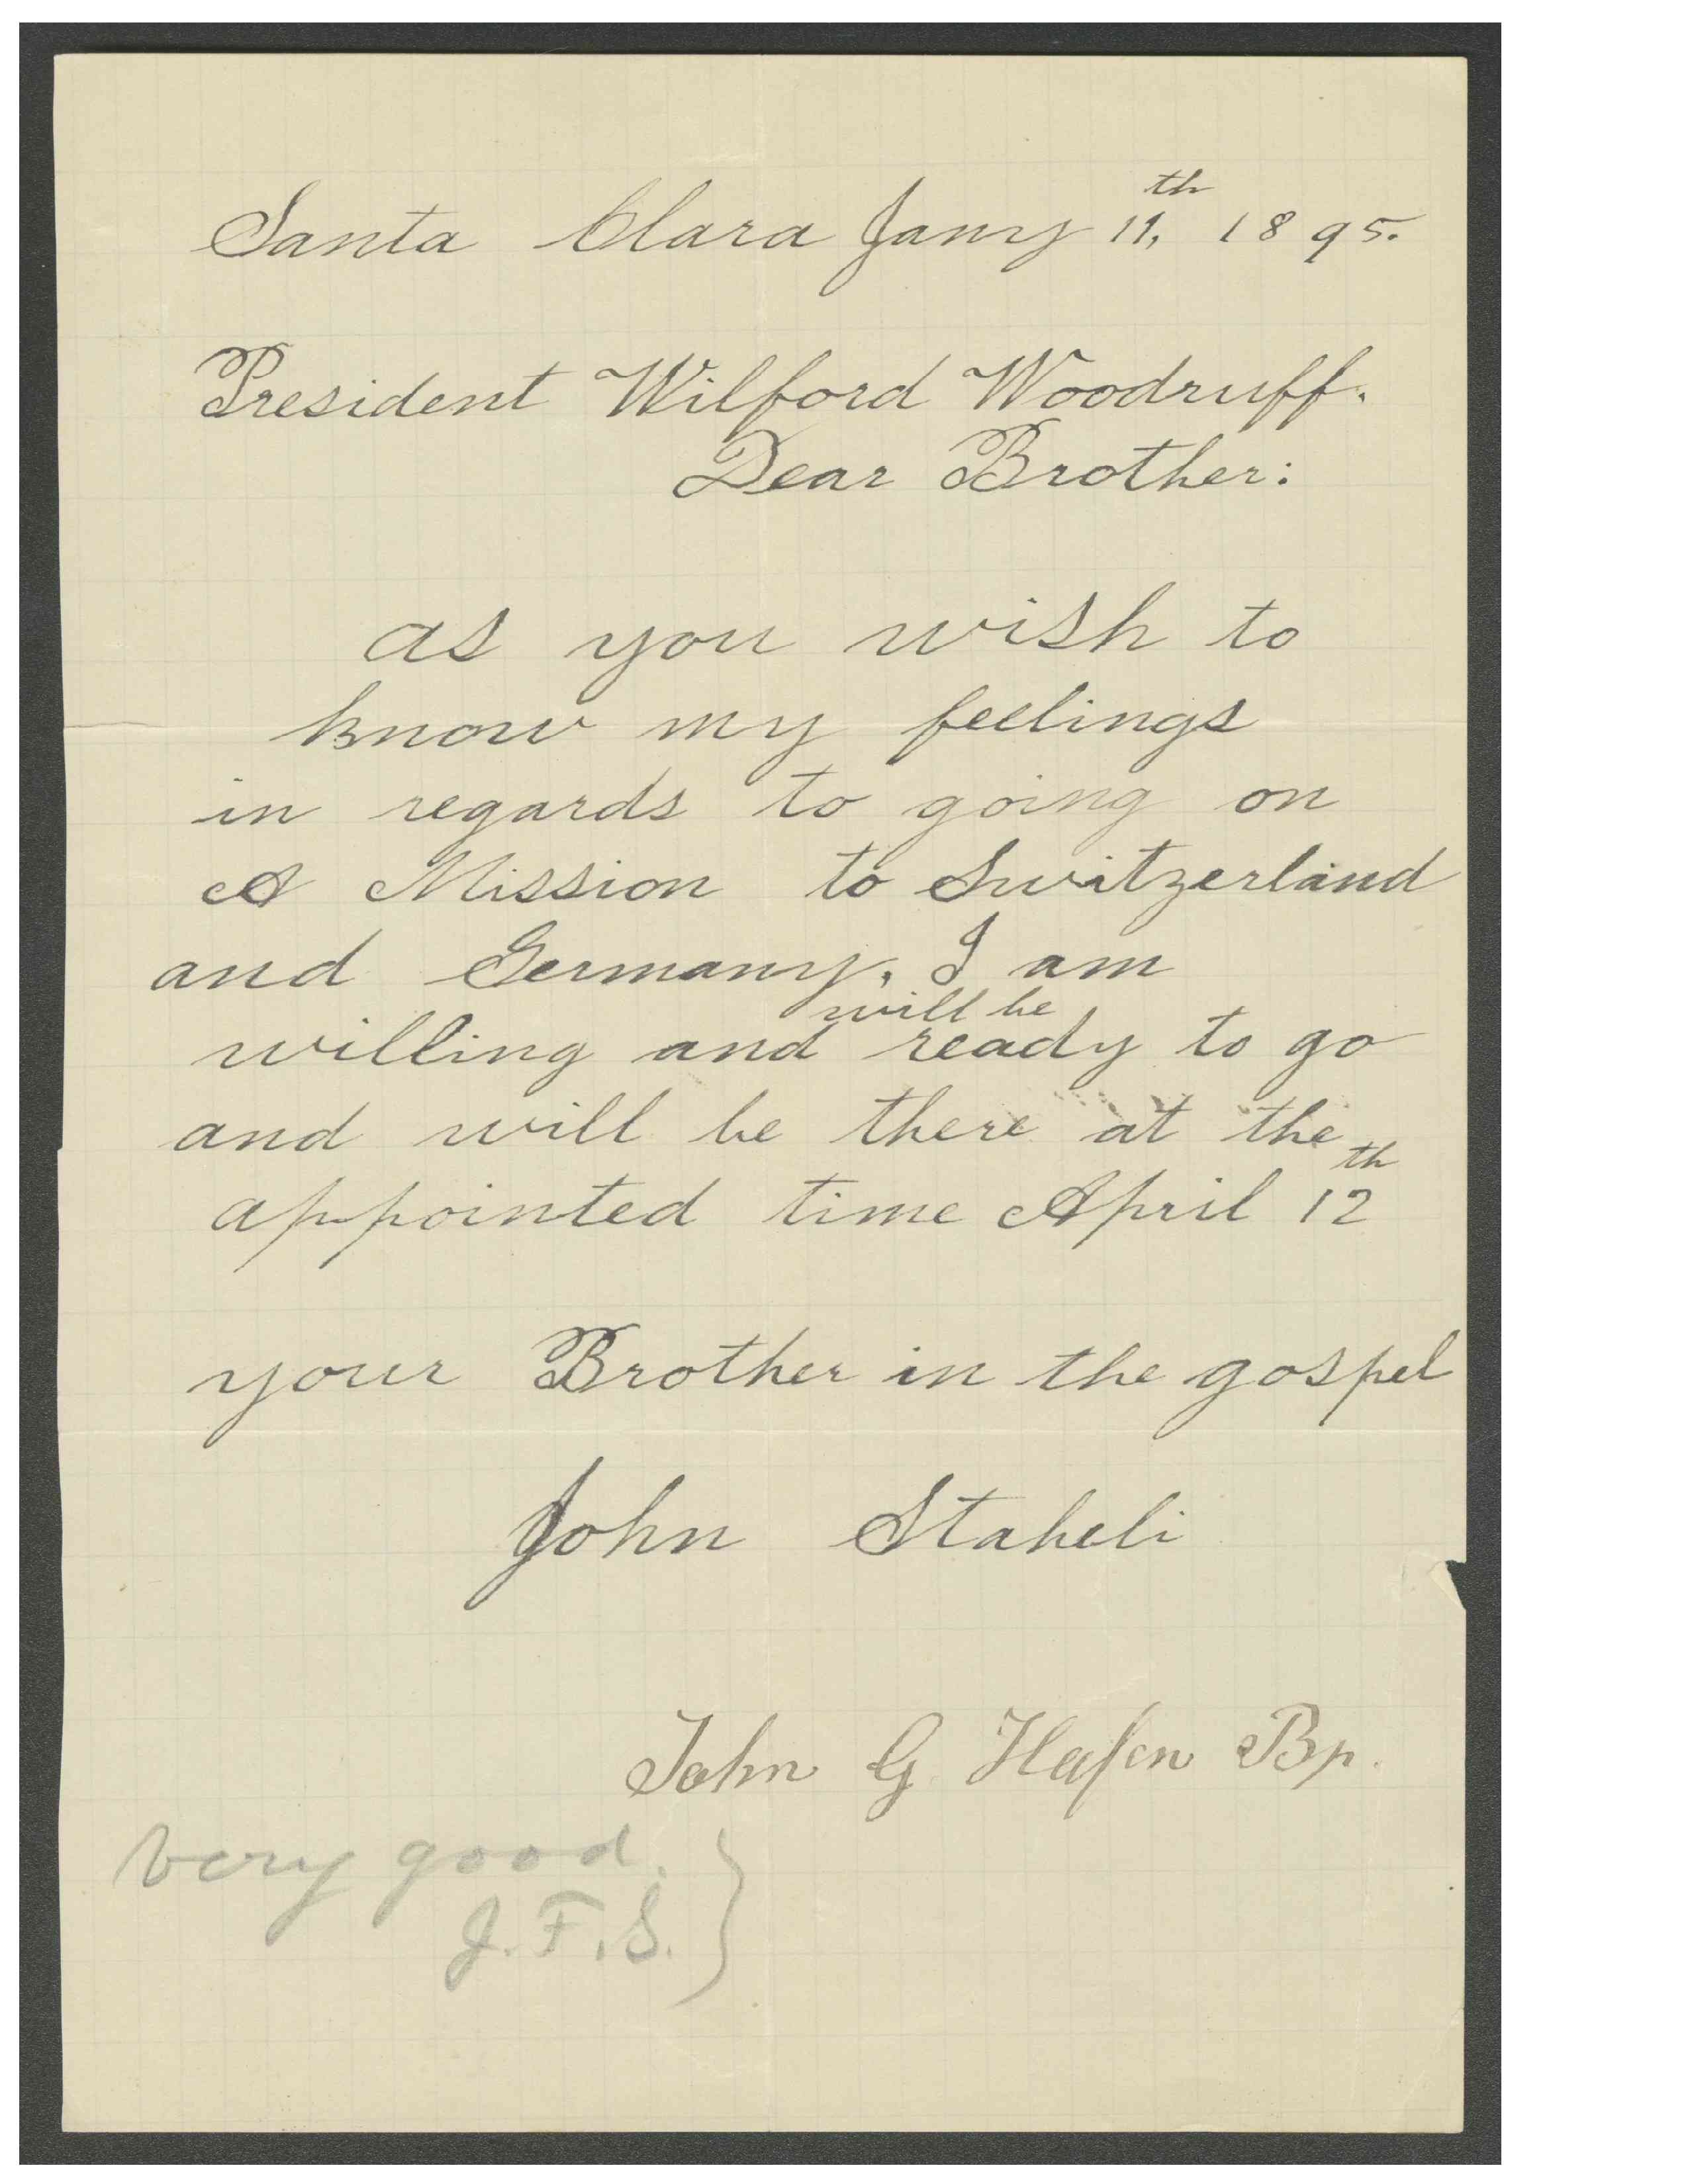 Santa Clara Jany 11,th 1895.
President Wilford Woodruff.
Dear Brother:
as you wish to
know my feelings
in regards to going on
A Mission to Switzerland
and Germany. I am
will be
willing and ready to go
and will be there at the
appointed time April 12th
your Brother in the gospel
John Staheli
John G Hafen Bp.
very good.
J.F.S.